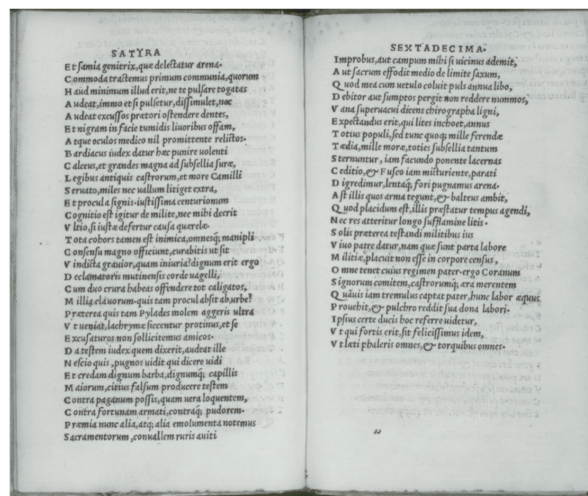 SATYRA
Et samia genitrix, quæ delectatur arena.
Commoda tractemus primum communia, quorum
Haud minimum illud erit, ne te pulsare togatus
Audeat, immo etsi pulsetur, dissimulet, nec
Audeat excussos prætori ostendere dentes,
Et nigram in facie tumidis liuoribus offam,
Atque oculos medico nil promittente relictos.
Bardiacus iudex datur hæc punire uolenti
Calceus, et grandes magna ad subsellia suræ,
Legibus antiquis castrorum, et more Camilli
Seruato, miles nec uallum litiget extra,
Et procul a signis. iustissima centurionum
Cognitio est igitur de milite, nec mihi deerit
Vltio, si iustæ defertur causa querelæ.
Tota cohors tamen est inimica, omnesq; manipli
Consensu magno officiunt, curabitis ut sit
Vindicta grauior, quam iniuria. dignum erit ergo
Declamatoris mutinensis corde uagelli,
Cum duo crura habeas offendere tot caligatos,
Millia clauorum. quis tam procul absit ab urbe?
Præterea quis tam Pylades molem aggeris ultra
Vt ueniat, lachrymæ siccentur protinus, et se
Excusaturos non sollicitemus amicos.
Da testem iudex quem dixerit, audeat ille
Nescio quis, pugnos uidit qui dicere uidi
Et credam dignum barba, dignumq; capillis
Maiorum, citius falsum producere testem
Contra paganum possis, quam uera loquentem,
Contra fortunam armati, contraq; pudorem.
Præmia nunc alia, atq; alia emolumenta notemus
Sacramentorum, conuallem ruris auiti
SEXTADECIMA.
Improbus, aut campum mihi si uicinus ademit,
Aut sacrum effodit medio de limite saxum,
Quod mea cum uetulo coluit puls annua libo,
Debitor aut sumptos pergit non reddere nummos,
Vana superuacui dicens chirographa ligni,
Expectandus erit, qui lites inchoet, annus
Totius populi, sed tunc quoq; mille ferendæ
Tædia, mille moræ, toties subsellia tantum
Sternuntur, iam facundo ponente lacernas
Ceditio, & Fusco iam micturiente, parati
Digredimur, lentaq; fori pugnamus arena.
Ast illis quos arma tegunt, & balteus ambit,
Quod placidum est, illis præstatur tempus agendi,
Nec res atteritur longo sufflamine litis.
Solis præterea testandi militibus ius
Viuo patre datur, nam quæ sunt parta labore
Militiæ, placuit non esse in corpore census,
Omne tenet cuius regimen pater. ergo Coranum
Signorum comitem, castrorumq; æra merentem
Quāuis iam tremulus captat pater, hunc labor æquus
Prouehit, & pulchro reddit sua dona labori.
Ipsius certe ducis hoc referre uidetur,
Vt qui fortis erit, sit felicissimus idem,
Vt læti phaleris omnes, & torquibus omnes.